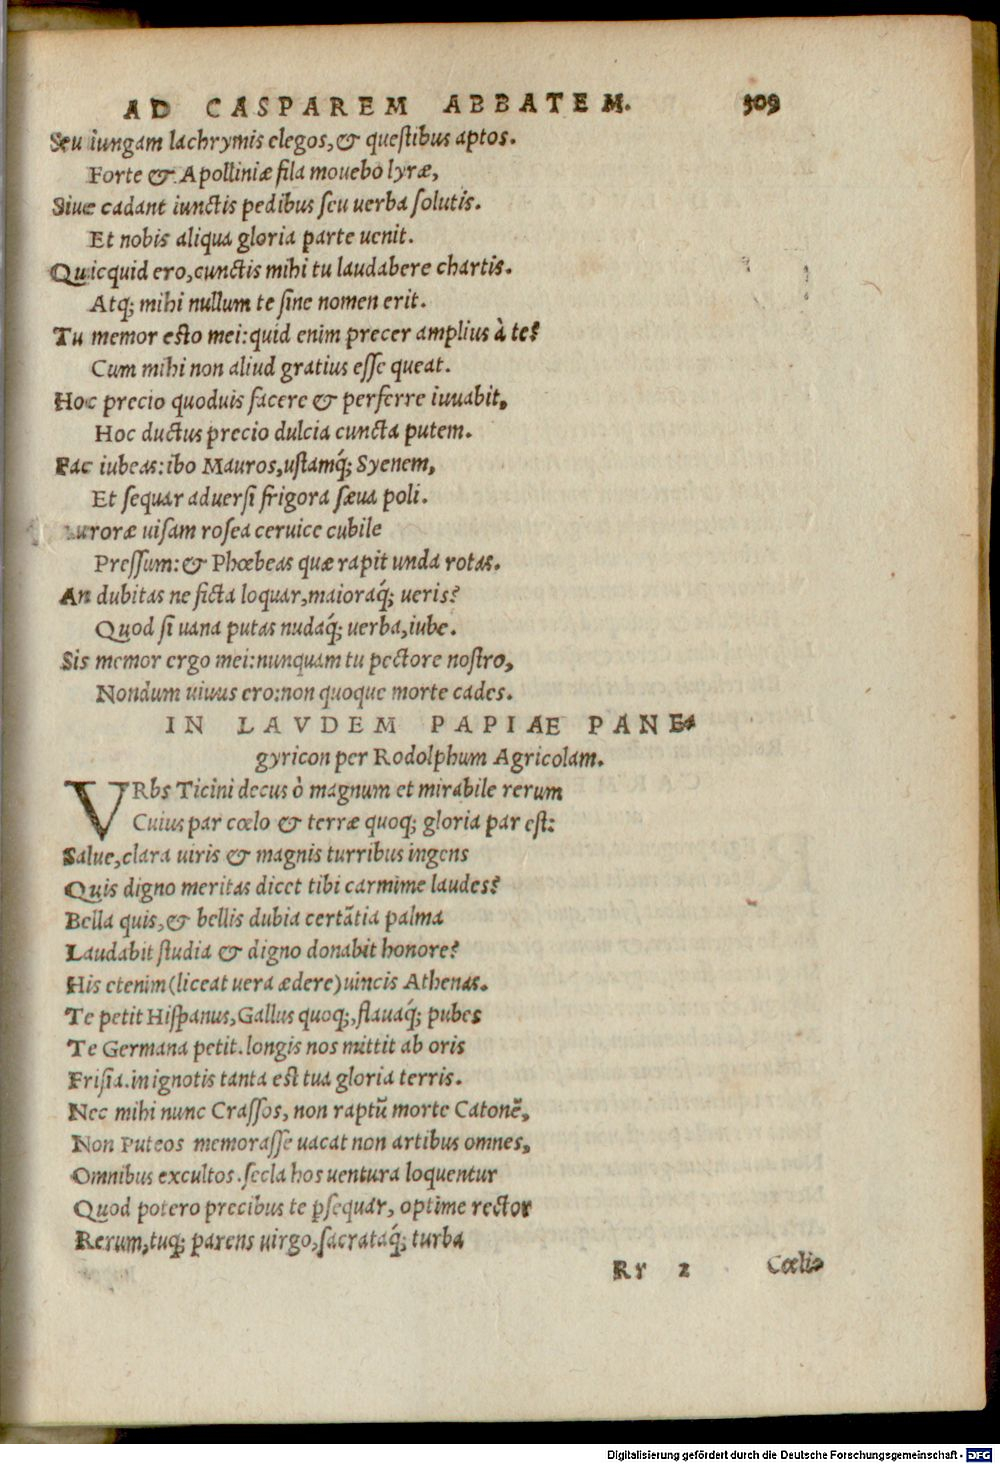 AD CASPAREM ABBATEM. 309
Seu iungam lachrymis elegos, & questibus aptos.
Forte & Apolliniæ fila mouebo lyræ,
Siue cadant iunctis pedibus seu uerba solutis.
Et nobis aliqua gloria parte uenit.
Quicquid ero, cunctis mihi tu laudabere chartis.
Atq; mihi nullum te sine nomen erit.
Tu memor esto mei: quid enim precer amplius à te?
Cum mihi non aliud gratius esse queat.
Hoc precio quoduis facere & perferre iuuabit,
Hoc ductus precio dulcia cuncta putem.
Fac iubeas: ibo Mauros, ustamq́; Syenem,
Et sequar aduersi frigora sæua poli.
Auroræ uisam rosea ceruice cubile
Pressum: & Phœbeas quæ rapit unda rotas.
An dubitas ne ficta loquar, maioraq́; ueris?
Quod si uana putas nudaq́; uerba, iube.
Sis memor ergo mei: nunquam tu pectore nostro,
Nondum uiuus ero: non quoque morte cades.
IN LAVDEM PAPIAE PANE-
gyricon per Rodolphum Agricolam.
VRbs Ticini decus ò magnum et mirabile rerum
Cuius par cœlo & terræ quoq; gloria par est:
Salue, clara uiris & magnis turribus ingens
Quis digno meritas dicet tibi carmime laudes?
Bella quis, & bellis dubia certãtia palma
Laudabit studia & digno donabit honore?
His etenim (liceat uera ædere) uincis Athenas.
Te petit Hispanus, Gallus quoq;, flauaq́; pubes
Te Germana petit. longis nos mittit ab oris
Frisia. in ignotis tanta est tua gloria terris.
Nec mihi nunc Crassos, non raptũ morte Catonẽ,
Non Puteos memorasse uacat non artibus omnes,
Omnibus excultos. secla hos uentura loquentur
Quod potero precibus te ꝑsequar, optime rector
Rerum, tuq; parens uirgo, sacrataq́; turba
Rr 2 Cœli-
Digitalisierung gefördert durch die Deutsche Forschungsgemeinschaft - DFG